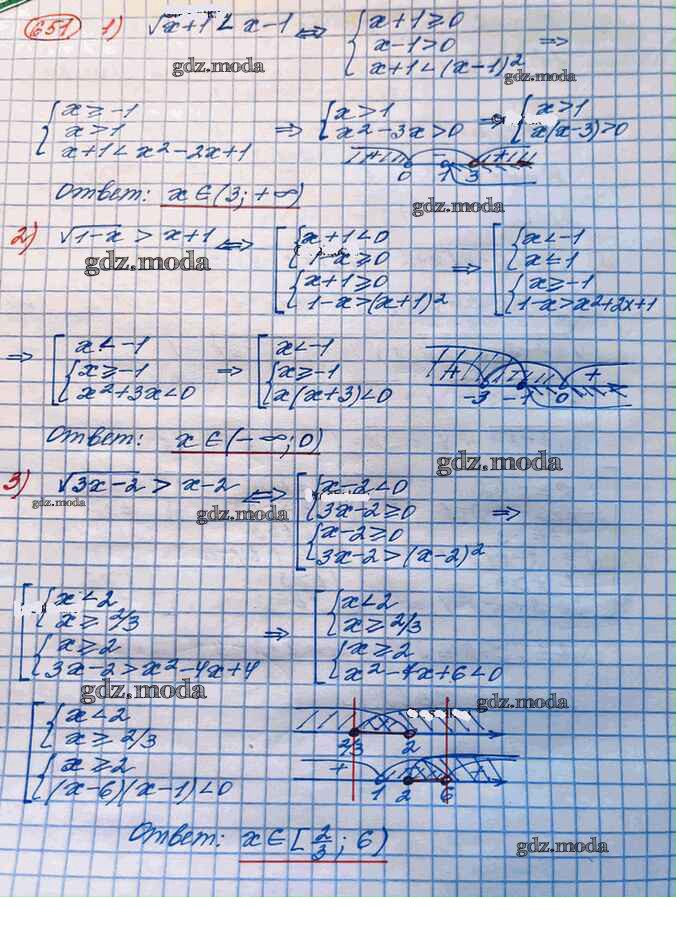 651 1) √x+1 < x-1 ⇔ { x+1≥0
x-1>0 ⇒
x+1<(x-1)²
gdz.moda
gdz.moda
{ x≥-1
x>1
x+1<x²-2x+1
⇒ { x>1
x²-3x>0
⇒ { x>1
x(x-3)>0
+ - +
0 1 3
Ответ: x∈(3;+∞)
gdz.moda
2) √1-x > x+1 ⇔ [ { x+1<0
1-x≥0
{ x+1≥0
1-x>(x+1)²
gdz.moda
⇒ [ { x<-1
x≤1
{ x≥-1
1-x>x²+2x+1
⇒ [ x<-1
{ x≥-1
x²+3x<0
⇒ [ x<-1
{ x≥-1
x(x+3)<0
+ - +
-3 -1 0
Ответ: x∈(-∞;0)
gdz.moda
3) √3x-2 > x-2 ⇔ [ { x-2<0
3x-2≥0
{ x-2≥0
3x-2>(x-2)²
⇒
gdz.moda
gdz.moda
[ { x<2
x≥2/3
{ x≥2
3x-2>x²-4x+4
⇒ [ { x<2
x≥2/3
{ x≥2
x²-7x+6<0
gdz.moda
gdz.moda
[ { x<2
x≥2/3
{ x≥2
(x-6)(x-1)<0
2/3 2
+ - +
1 2 6
Ответ: x∈[2/3; 6)
gdz.moda
gdz.moda